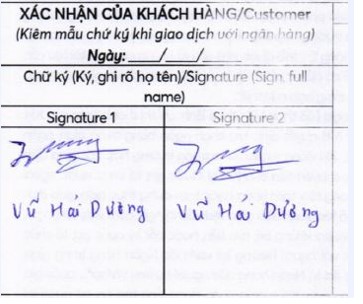 XÁC NHẬN CỦA KHÁCH HÀNG/Customer
(Kiêm mẫu chữ ký khi giao dịch với ngân hàng)
Ngày: ___/___/___
Chữ ký (Ký, ghi rõ họ tên)/Signature (Sign, full
name)
Signature 1 Signature 2
Vũ Hải Dường Vũ Hải Dường